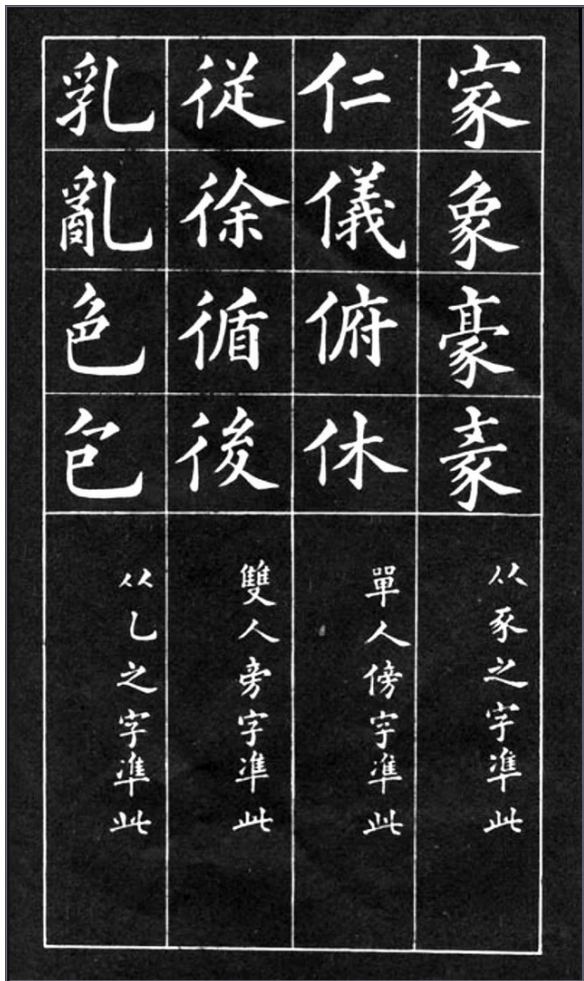 家象豪
从豕之字準此
仁儀俯休
單人傍字準此
従徐循後
雙人旁字準此
乳亂色包
从乚之字準此